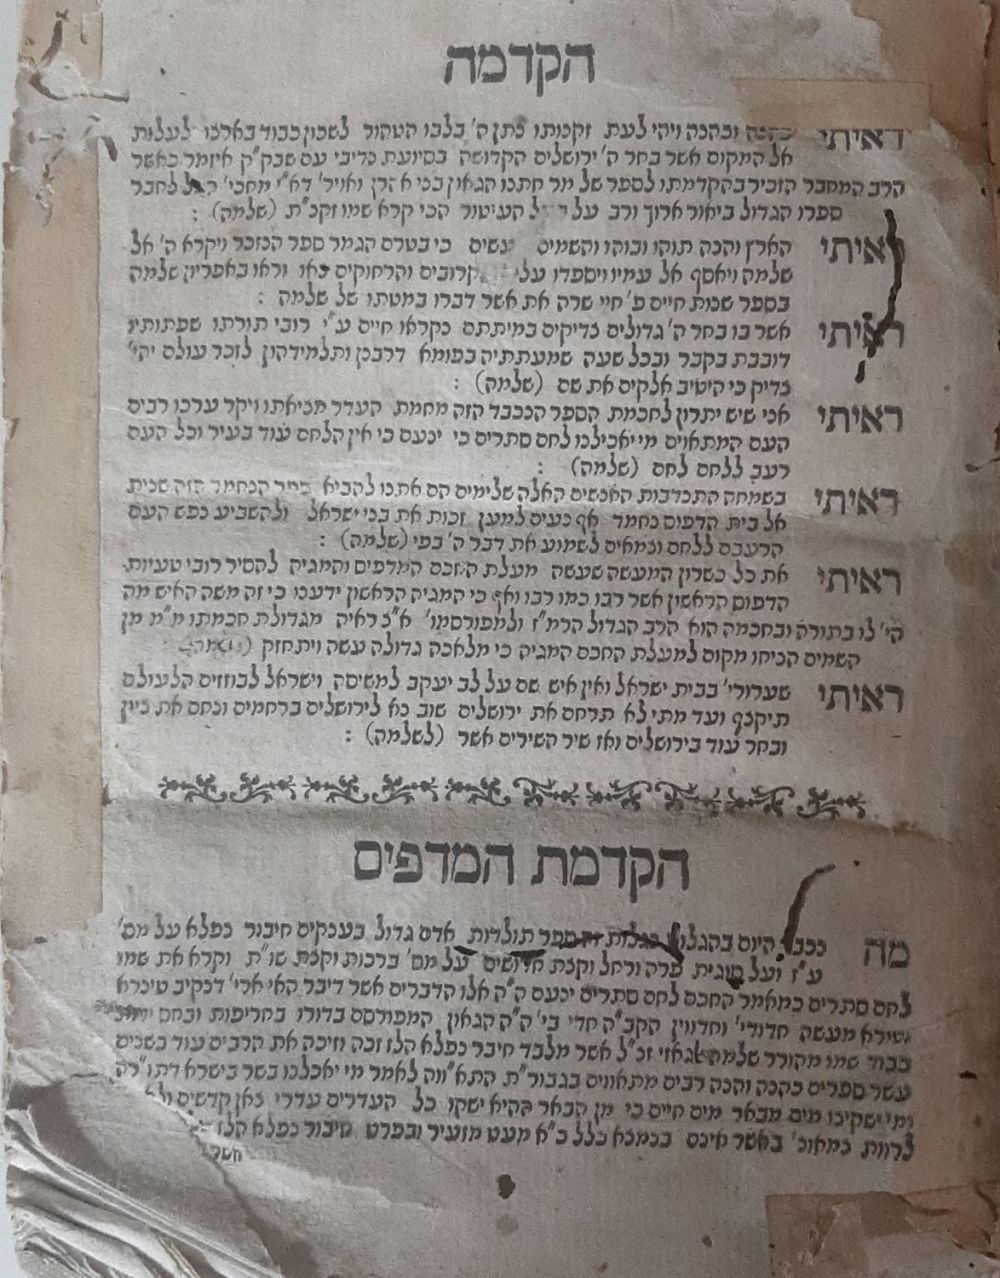 הקדמה
ראיתי כהנה וכהנה ויהי לעת זקנותו נתן ה' בלבו הטהור לשכון כבוד בארנו לעלות
אל המקום אשר בחר ה' ירושלים הקדושה בסיועת נדיבי עם שבק"ק איזמר כאשר
הרב המחבר הזכיר בהקדמתו לספר של מר חתנו הגאון בני אהרן ואויר' דא"י מחכי' לחבר
ספרו הגדול ביאור ארוך ורב על העיטור הכי קרא שמו וזקנ"ת (שלמה) :
ראיתי הארץ והנה תוהו ובוהו והשמים עשים כי בטרם הגמר ספר הנזכר ויקרא ה' אל
שלמה ויאסף אל עמיו ויספדו עליו קרובים והרחוקים באו וראו באפריון שלמה
בספר שנות חיים פ' חיי שרה את אשר דברו במטתו של שלמה :
ראיתי אשר בו בחר ה' גדולים צדיקים במיתתם נקראו חיים ע"י רובי תורתו שפתותיו
דובבת בקבר ובכל שעה שמעתתיה בפומא דרבנן ותלמידהון לזכר עולם יהי'
צדיק כי היטיב אלקים את שם (שלמה) :
ראיתי אני שיש יתרון לחכמת הספר הנכבד הזה מחמת העדר מציאתו ויקר ערכו רבים
העם המתאוים מי יאכילנו לחם סתרים כי ינעם כי אין הלחם עוד בעיר וכל העם
רעב ללחם לחם (שלמה) :
ראיתי בשמחה התנדבות האנשים האלה שלימים הם אתנו להביא ספר הנחמד הזה שנית
אל בית הדפוס נחמד אף נעים למען זכות את בני ישראל ולהשביע נפש העם
הרעבם ללחם וצמאים לשמוע את דבר ה' בפי (שלמה) :
ראיתי את כל כשרון המעשה שעשה מעלת החכם המדפים והמגיה להסיר רובי טעיות
הדפוס הראשון אשר רבו כמו רבו ואף כי המגיה הראשון ידענו כי זה משה האיש מה
הי' לו בתורה ובחכמה הוא הרב הגדול הרמ"ז ולמפורסמו' א"צ ראיה מגדולת חכמתו מ"מ מן
השמים הניחו מקום למעלת החכם המגיה כי מלאכה גדולה עשה ויתחזק
ראיתי שערורי' בבית ישראל ואין איש שם על לב יעקב למשיסה וישראל לבוזזים הלעולם
תיקצף ועד מתי לא תרחם את ירושלים שוב נא לירושלים ברחמים ונחם את ציון
ובחר עוד בירושלים ואז שיר השירים אשר (לשלמה) :
הקדמת המדפים
מה נכבד היום בהגלות נגלות זה ספר תולדות אדם גדול בענקים חיבור נפלא על מס'
ע"ז ועל סוגית פרה ורחל וקצת חדושים על מס' ברכות וקצת שו"ת וקרא את שמו
לחם סתרים כמאמר החכם לחם סתרים ינעם ה"ה אלו הדברים אשר דיבר האי ארי' דנקיב טינרא
וטורא מעשה חדודי' וחדווין הקב"ה חדי בי' ה"ה הגאון המפורסם בדורו בחריפות ובחם
כבוד שמו מהורר שלמה אלגאזי זכ"ל אשר מלבד חיבר נפלא הלז זכה וזיכה את הרבים עוד בשנים
עשר ספרים כהנה והנה רבים מתאווים בגבור"ת התא"ווה לאמר מי יאכלנו בשר בישרא דתו"רה
ומי ישקינו מים מבאר מים חיים כי מן הבאר ההיא ישקו כל העדרים עדרי צאן קדשים
לרוות צמאונ' באשר אינם בנמצא כלל כ"א מעט מזעיר ובפרט חיבור נפלא הלז
חשך